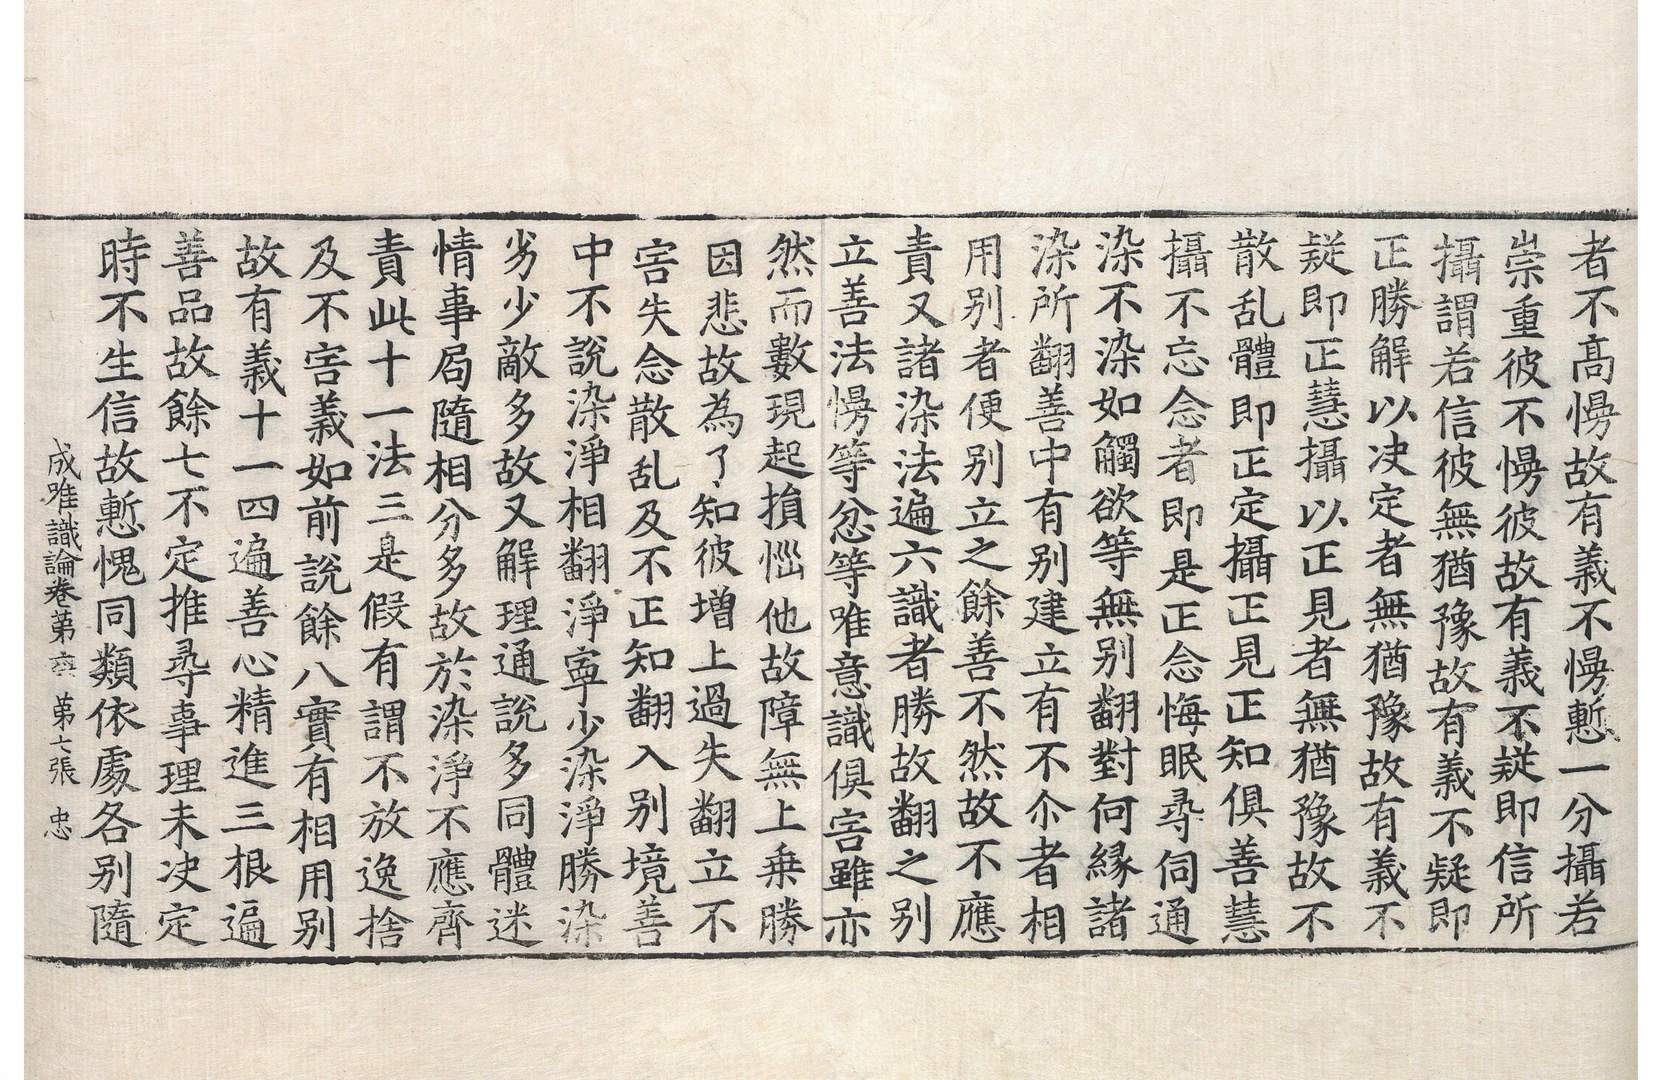 者不高慢故有義不慢慙一分攝若
崇重彼不慢彼故有義不疑即信所
攝謂若信彼無猶豫故有義不疑即
正勝解以决定者無猶豫故有義不
疑即正慧攝以正見者無猶豫故不
散乱體即正定攝正見正知俱善慧
攝不忘念者即是正念悔眠尋伺通
染不染如觸欲等無别翻對何緣諸
染所翻善中有别建立有不尒者相
用别者便别立之餘善不然故不應
責又諸染法遍六識者勝故翻之别
立善法慢等忿等唯意識俱害雖亦
然而數現起損惱他故障無上乗勝
因悲故為了知彼增上過失翻立不
害失念散乱及不正知翻入别境善
中不說染淨相翻淨寧少染淨勝染
劣少敵多故又解理通說多同體迷
情事局隨相分多故於染淨不應齊
責此十一法三是假有謂不放逸捨
及不害義如前說餘八實有相用别
故有義十一四遍善心精進三根遍
善品故餘七不定推尋事理未决定
時不生信故慙愧同類依處各别隨
成唯識論卷苐 苐七張 忠